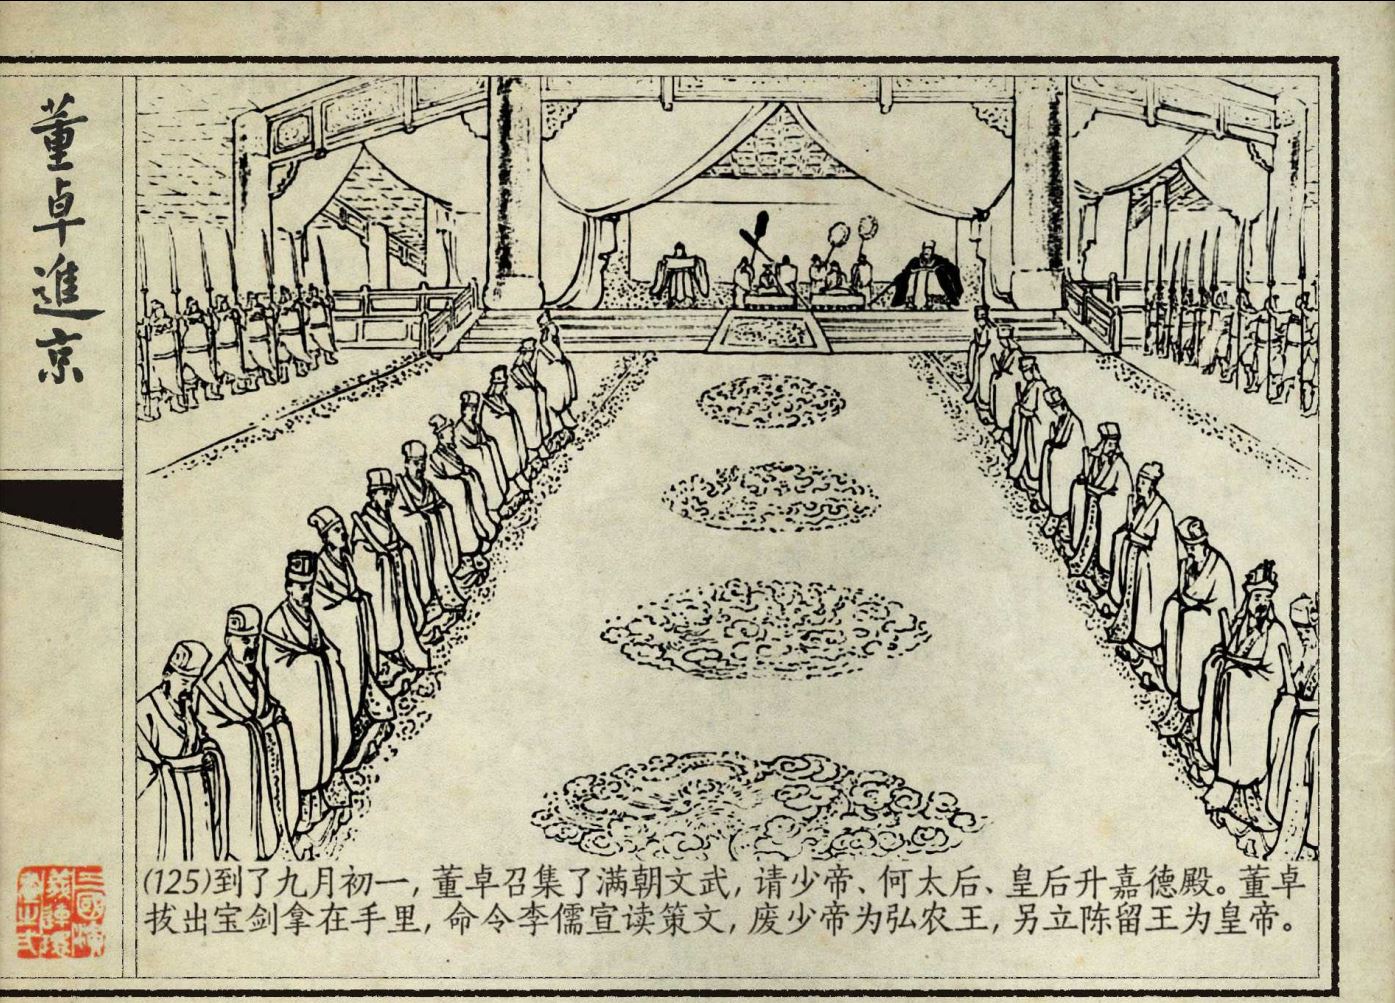 董卓進京
(125)到了九月初一，董卓召集了满朝文武，请少帝、何太后、皇后升嘉德殿。董卓
拔出宝剑拿在手里，命令李儒宣读策文，废少帝为弘农王，另立陈留王为皇帝。